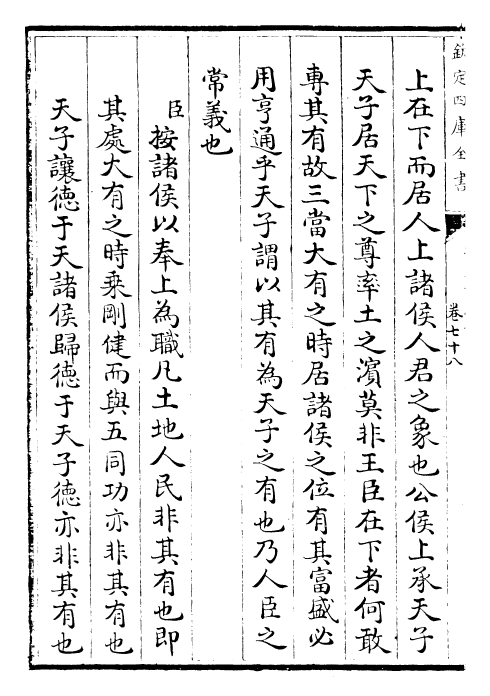 欽定四庫全書
卷七十八
上在下而居人上諸侯人君之象也公侯上承天子
天子居天下之尊率土之濱莫非王臣在下者何敢
專其有故三當大有之時居諸侯之位有其富盛必
用亨通乎天子謂以其有為天子之有也乃人臣之
常義也
臣按諸侯以奉上為職凡土地人民非其有也即
其處大有之時乘剛健而與五同功亦非其有也
天子讓德于天諸侯歸德于天子德亦非其有也